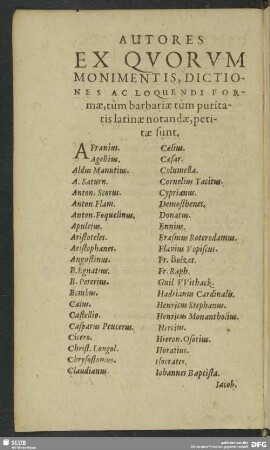 AUTORES
EX QVORVM
MONIMENTIS, DICTIO-
NES AC LOQUENDI FOR-
mæ, tùm barbariæ tùm purita-
tis latinæ notandæ, peti-
tæ sunt.
AFranius.
Agellius.
Aldus Manutius.
A. Saturn.
Anton. Scorus.
Anton. Flam.
Anton. Foquelinus.
Apuleius.
Aristoteles.
Aristophanes.
Augustinus.
B. Egnatius.
B. Pererius.
Bembus.
Caius.
Castellio.
Casparus Peucerus.
Cicero.
Christ. Longol.
Chrysostomus.
Claudianus.
Cælius.
Cæsar.
Columella.
Cornelius Tacitus.
Cyprianus.
Demosthenes.
Donatus.
Ennius.
Erasmus Roterodamus.
Flavius Vopiscus.
Fr. Bolzet.
Fr. Raph.
Guil. V Vithack.
Hadrianus Cardinalis.
Henricus Stephanus.
Henricus Monantholius.
Hercius.
Hieron. Osorius.
Horatius.
Isocrates.
Iohannes Baptista.
Iacob.
SLUB
DFG